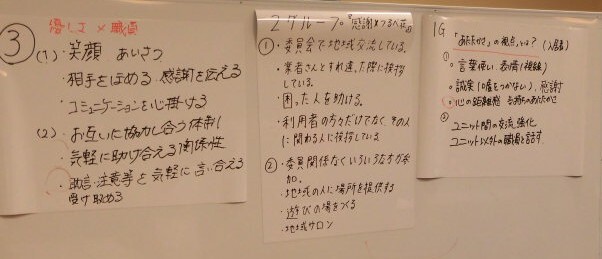 ③
優しさ×職員
(1)・笑顔 あいさつ
・相手をほめる 感謝を伝える
・コミュニケーションを心掛ける
(2)・お互いに協力し合う体制
・気軽に助け合える関係性
・助言・注意等を気軽に言い合える
受け止める
2グループ。「感謝×つるべ荘」
①・委員会で地域交流している。
・業者さんとすれ違った際に挨拶
している。
・困った人を助ける。
・利用者の方だけでなく、その人
に関わる人に挨拶している
②・委員関係なくいろいろな方が参
加。
・地域の人に場所を提供する
・遊びの場をつくる
・地域サロン
1G
「あたたかさ」の視点とは?
①
・言葉使い、表情(視線)
・誠実(嘘をつかない)、感謝
・心の距離感
②
ユニット間の交流、強化
ユニット以外の職員と話す